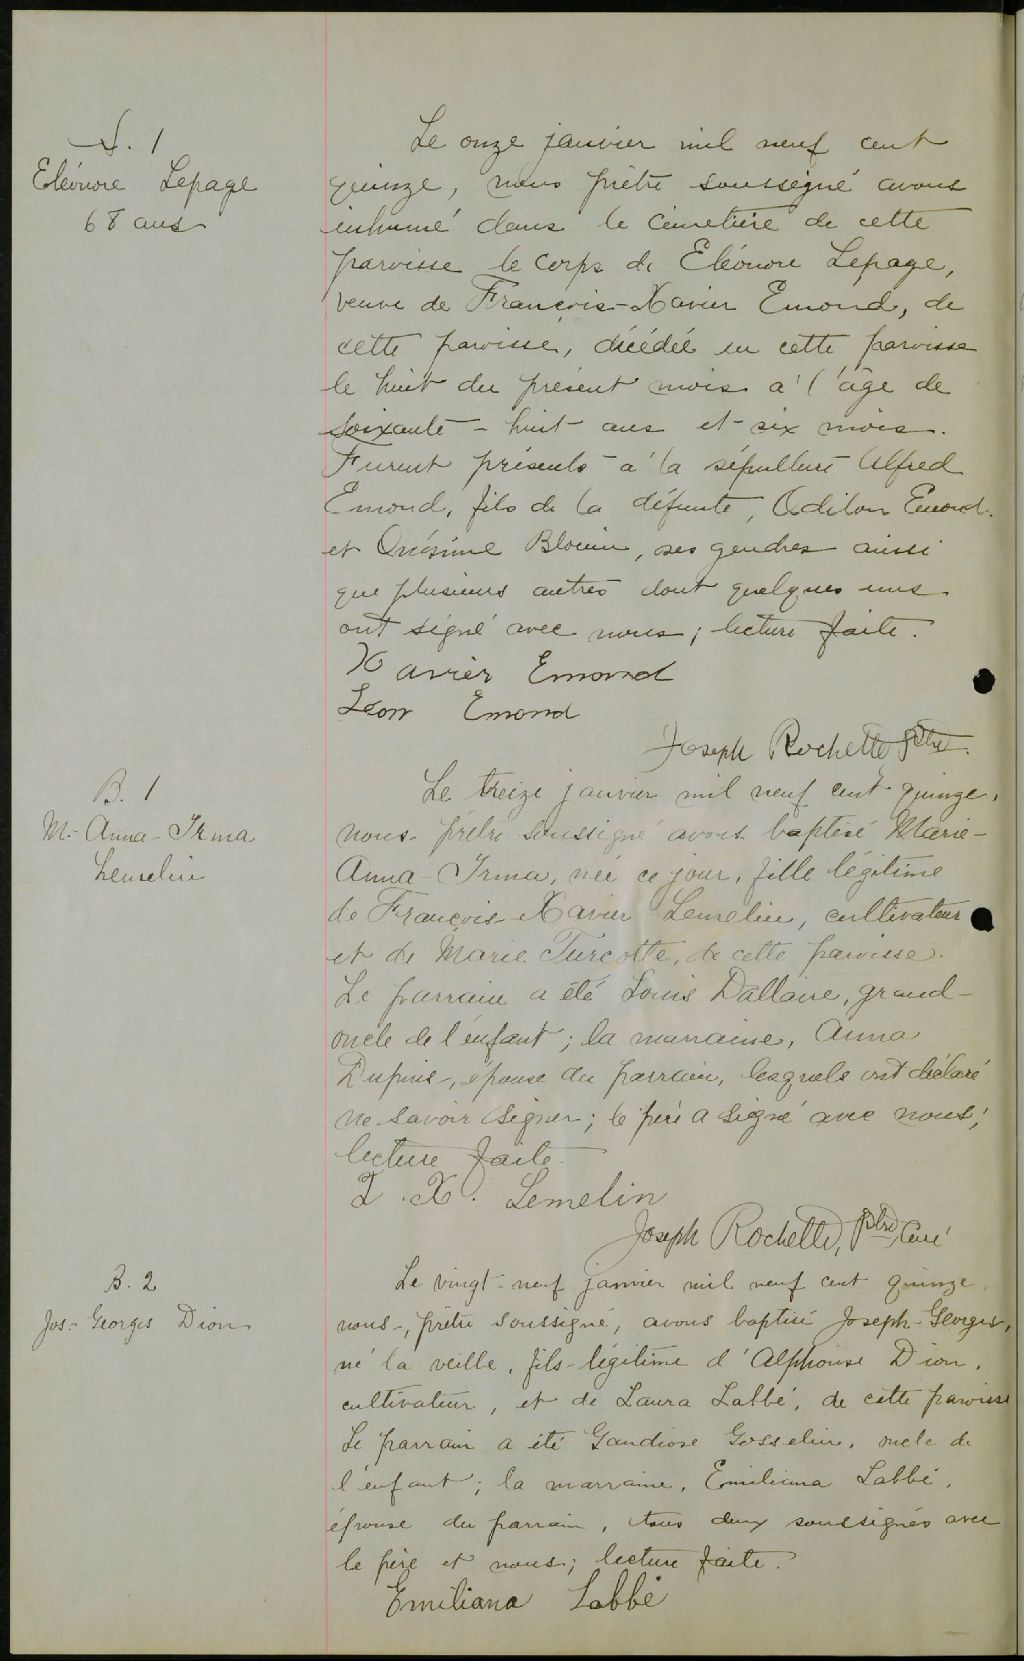 S. 1
Eléonore Lepage
68 ans
Le onze janvier mil neuf cent
quinze, nous prêtre soussigné avons
inhumé dans le cimetière de cette
paroisse le corps de Eléonore Lepage,
veuve de François-Xavier Emond, de
cette paroisse, décédée en cette paroisse
le huit du présent mois à l'âge de
soixante-huit ans et six mois.
Furent présents à la sépulture Alfred
Emond, fils de la défunte, Odilon Emond
et Onésime Blouin, ses gendres ainsi
que plusieurs autres dont quelques uns
ont signé avec nous; lecture faite.
Xavier Emond
Léon Emond
Joseph Rochette Ptre.
B. 1
M.-Anna-Irma
Lemelin
Le treize janvier mil neuf cent quinze,
nous prêtre soussigné avons baptisé Marie-
Anna-Irma, née ce jour, fille légitime
de François-Xavier Lemelin, cultivateur
et de Marie Turcotte, de cette paroisse.
Le parrain a été Louis Dallaire, grand-
oncle de l'enfant; la marraine, Anna
Dupuis, épouse du parrain, lesquels ont déclaré
ne savoir signer; le père a signé avec nous;
lecture faite.
F. X. Lemelin
Joseph Rochette, Ptre, Curé
B. 2
Jos.-Georges Dion
Le vingt-neuf janvier mil neuf cent quinze
nous, prêtre soussigné, avons baptisé Joseph-Georges,
né la veille, fils légitime d'Alphonse Dion,
cultivateur, et de Laura Labbé, de cette paroisse
Le parrain a été Gaudiose Gosselin, oncle de
l'enfant; la marraine, Emiliana Labbé,
épouse du parrain, tous deux soussignés avec
le père et nous; lecture faite.
Emiliana Labbé